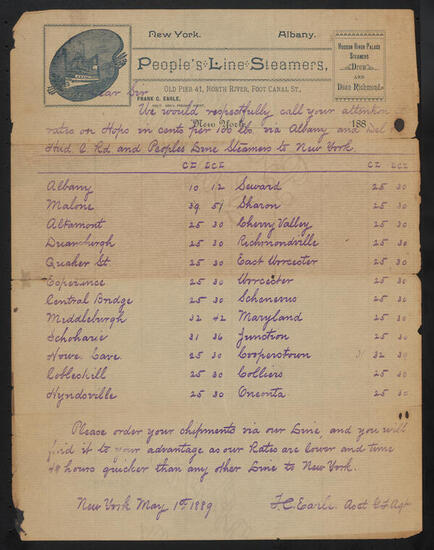 New York. Albany.
People's Line Steamers,
Hudson River Palace
Steamers
Drew
AND
Dean Richmond.
OLD PIER 41, NORTH RIVER, FOOT CANAL ST.,
FRANK C. EARLE,
Dear Sir
New York, 188
We would respectfully call your attention
rates on Hops in cents per 100 lbs. via Albany and Del
Hud C Rd and Peoples Line Steamers to New York.
CL LCL CL LCL
Albany 10 12 Seward 25 30
Malone 39 51 Sharon 25 30
Altamont 25 30 Cherry Valley 25 30
Duanesburgh 25 30 Richmondville 25 30
Quaker St. 25 30 East Worcester 25 30
Esperance 25 30 Worcester 25 30
Central Bridge 25 30 Schenevus 25 30
Middleburgh 32 42 Maryland 25 30
Schoharie 31 36 Junction 25 30
Howe. Cave. 25 30 Cooperstown 32 39
Cobleskill 25 30 Colliers 25 30
Hyndsville 25 30 Oneonta 25 30
Please order your shipments via our Line and you will
find it to your advantage as our Rates are lower and time
48 hours quicker than any other Line to New York.
New York May 1st 1889 F.C. Earle Asst G F Agt